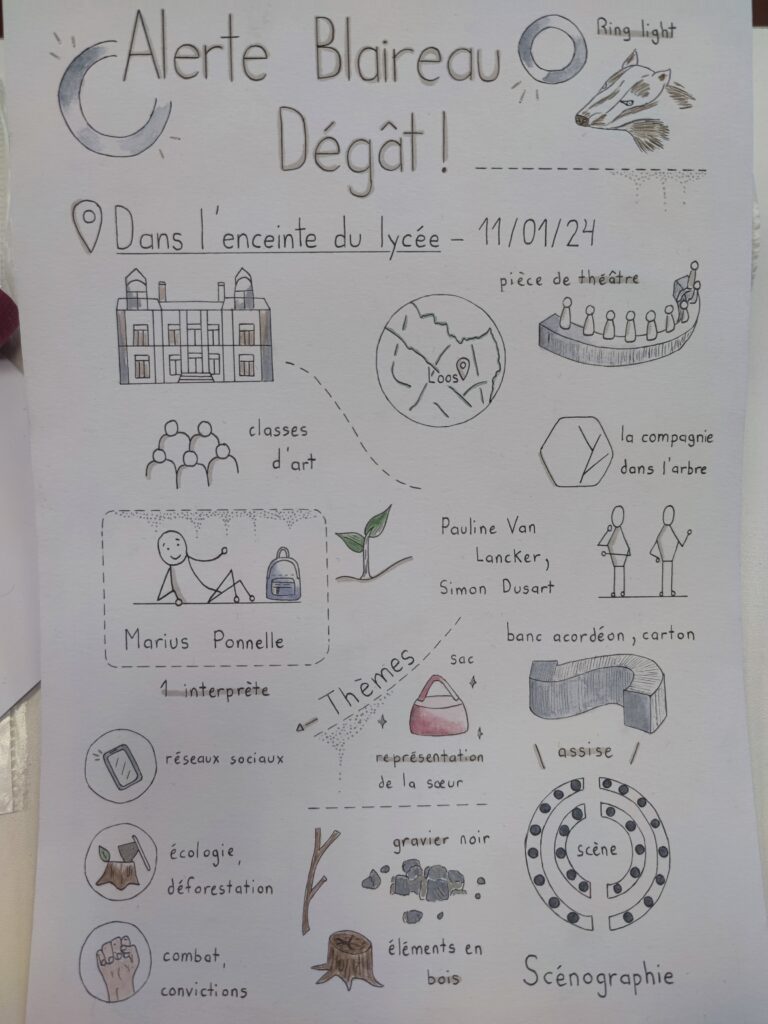 Alerte Blaireau
Dégât !
Ring light
Dans l'enceinte du lycée - 11/01/24
pièce de théâtre
Loos
classes
d'art
la compagnie
dans l'arbre
Pauline Van
Lancker,
Simon Dusart
Marius Ponnelle
1 interprète
Thèmes
sac
représentation
de la sœur
banc acordéon, carton
assise
scène
Scénographie
réseaux sociaux
écologie,
déforestation
combat,
convictions
gravier noir
éléments en
bois